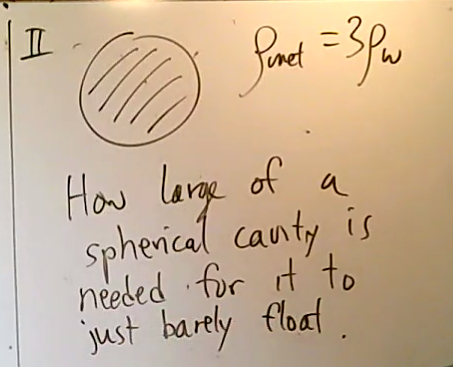 II
ρmet = 3ρw
How large of a
spherical cavity is
needed for it to
just barely float.